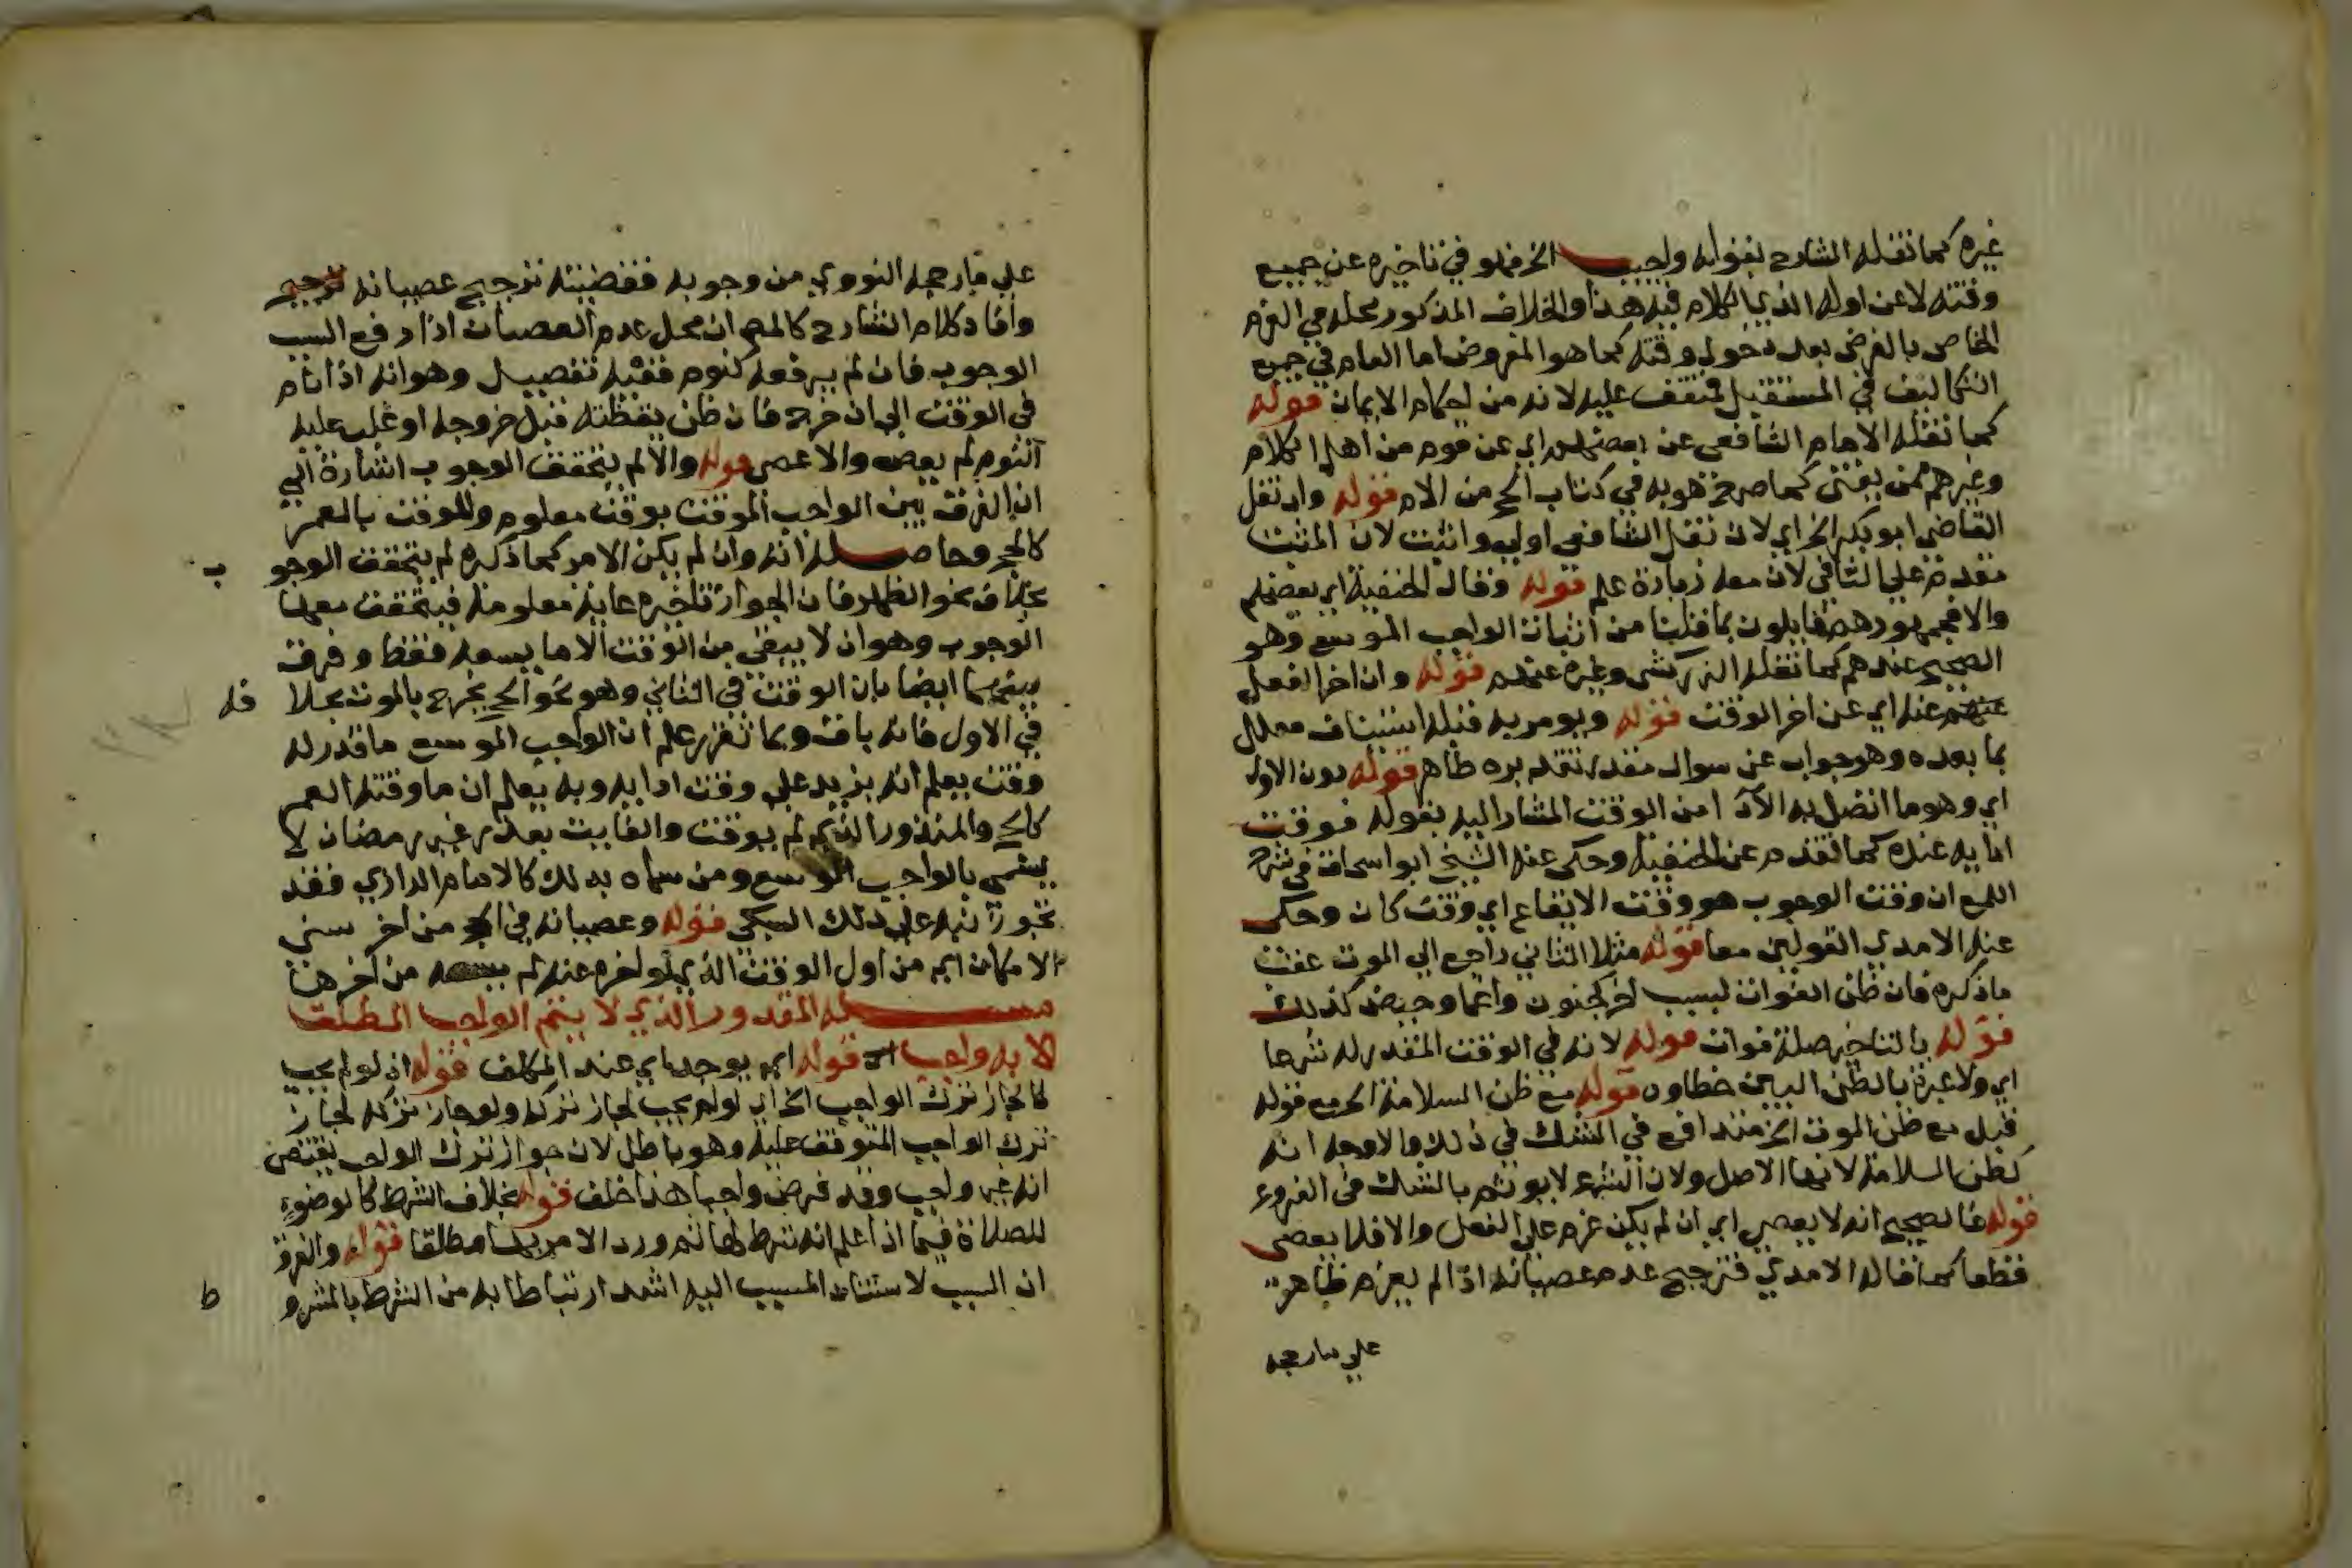 غيره كما نقله الشارح بقوله واجب الخ فهو في تاخيره عن جميع
وقته لا عن اوله الذي الكلام فيه هذا والخلاف المذكور محله في العزم
الخاص بالفرض بعد دخول وقته كما هو المفروض اما العام في جميع
التكاليف في المستقبل فمتفق عليه لانه من احكام الايمان قوله
كما نقله الامام الشافعي عن بعضهم اي عن قوم من اهل الكلام
وغيرهم ممن يفتي كما صرح هو به في كتاب الحج من الام قوله وان نقل
القاضي ابو بكر الخ اي لان نقل الشافعي اولي واثبت لان المثبت
مقدم علي النافي لان معه زيادة علم قوله وقال الحنفية اي بعضهم
والا فجمهورهم قايلون بما قلنا من اثبات الواجب الموسع وهو
الصحيح عندهم كما نقله الزركشي وغيره عنهم قوله وان اخر الفعل
عنه اي عن اخر الوقت قوله ويومر به قبله استيناف معلل
بما بعده وهو جواب عن سوال مقدر تقديره ظاهر قوله دون الاول
اي وهو ما اتصل به الادا من الوقت المشار اليه بقوله فوقت
ادايه عنده كما تقدم عن الحنفية وحكي عنه الشيخ ابو اسحاق في شرح
اللمع ان وقت الوجوب هو وقت الايقاع اي وقت كان وحكي
عنه الامدي القولين معا قوله مثلا الثاني راجع الي الموت عقب
ما ذكره فان ظن الفوات لسبب اخر كجنون واغما وحيض كذلك
قوله بالتاخير صلة فوات قوله لانه في الوقت المقدر له شرعا
اي ولا عبرة بالظن البين خطاوه قوله مع ظن السلامة الخ مع قوله
قبل مع ظن الموت الخ متدافع في الشك في ذلك والاوجه انه
كظن السلامة لانها الاصل ولان الشرع لا يوثم بالشك في الفروع
قوله فالصحيح انه لا يعصي اي ان لم يكن عزم علي الفعل والا فلا يعصي
قطعا كما قاله الامدي فترجيح عدم عصيانه اذا لم يعزم ظاهر
علي ما رجحه
علي ما رجحه النووي من وجوبه فقضيته ترجيح عصيانه ترجيح
وافاد كلام الشارح كالمص ان محل عدم العصيان اذا رفع السبب
الوجوب فان لم يرفعه كنوم ففيه تفصيل وهو انه اذا نام
في الوقت الي ان خرج فان ظن يقظته قبل خروجه او غلب عليه
النوم لم يعص والا عصي قوله والا لم يتحقق الوجوب اشارة الي
ان الفرق بين الواجب الموقت بوقت معلوم والموقت بالعمر
كالحج وحاصله انه وان لم يكن الامر كما ذكره لم يتحقق الوجو ب
بخلاف نحو الظهر فان لجواز تاخيره غاية معلومة فيتحقق معها
الوجوب وهو ان لا يبقي من الوقت الا ما يسعه فقط وفرق
بينهما ايضا بان الوقت في الثاني وهو نحو الحج يخرج بالموت بخلا فه
في الاول فانه باق وبما تقرر علم ان الواجب الموسع ما قدر له
وقت يعلم انه يزيد علي وقت ادايه وبه يعلم ان ما وقته العمر
كالحج والمنذور الذي لم يوقت والفايت بعذر غير رمضان لا
يسمي بالواجب الموسع ومن سماه بذلك كالامام الرازي فقد
تجوز نبه علي ذلك السبكي قوله وعصيانه في الحج من اخر سني
الامكان اي من اول الوقت الذي لو اخره عنه لم يسعه من اخرها
مسئله المقدور الذي لا يتم الواجب المطلق
الا به واجب الخ قوله اي يوجد اي عند المكلف قوله اذ لو لم يجب
لجاز ترك الواجب الخ اي لو لم يجب لجاز تركه ولو جاز تركه لجاز
ترك الواجب المتوقف عليه وهو باطل لان جواز ترك الواجب يقتضي
انه غير واجب وقد فرض واجبا هذا خلف قوله بخلاف الشرط كالوضوء
للصلاة فيما اذا علم انه شرط لها ثم ورد الامر بها مطلقا قوله والفرق
ان السبب لاستناد المسبب اليه اشد ارتباطا به من الشرط بالمشرو ط